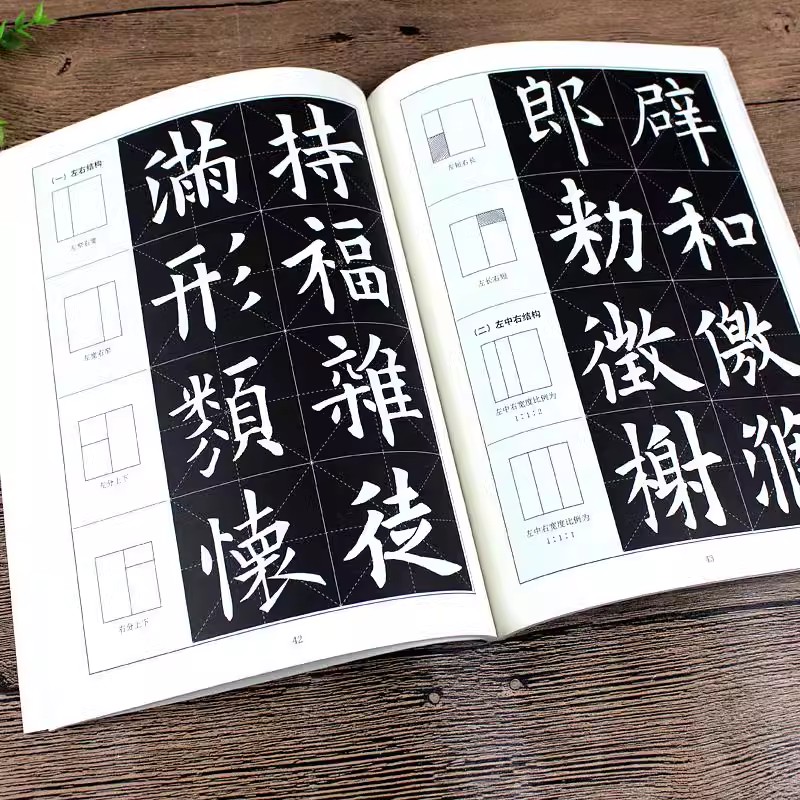 （一）左右结构
左窄右宽
滿 持
左宽右窄
形 福
左分上下
類 雜
右分上下
懷 徒
42
左短右长
郎 辟
左长右短
勑 和
（二）左中右结构
左中右宽度比例为
1：1：2
徵 儌
左中右宽度比例为
1：1：1
榭
43